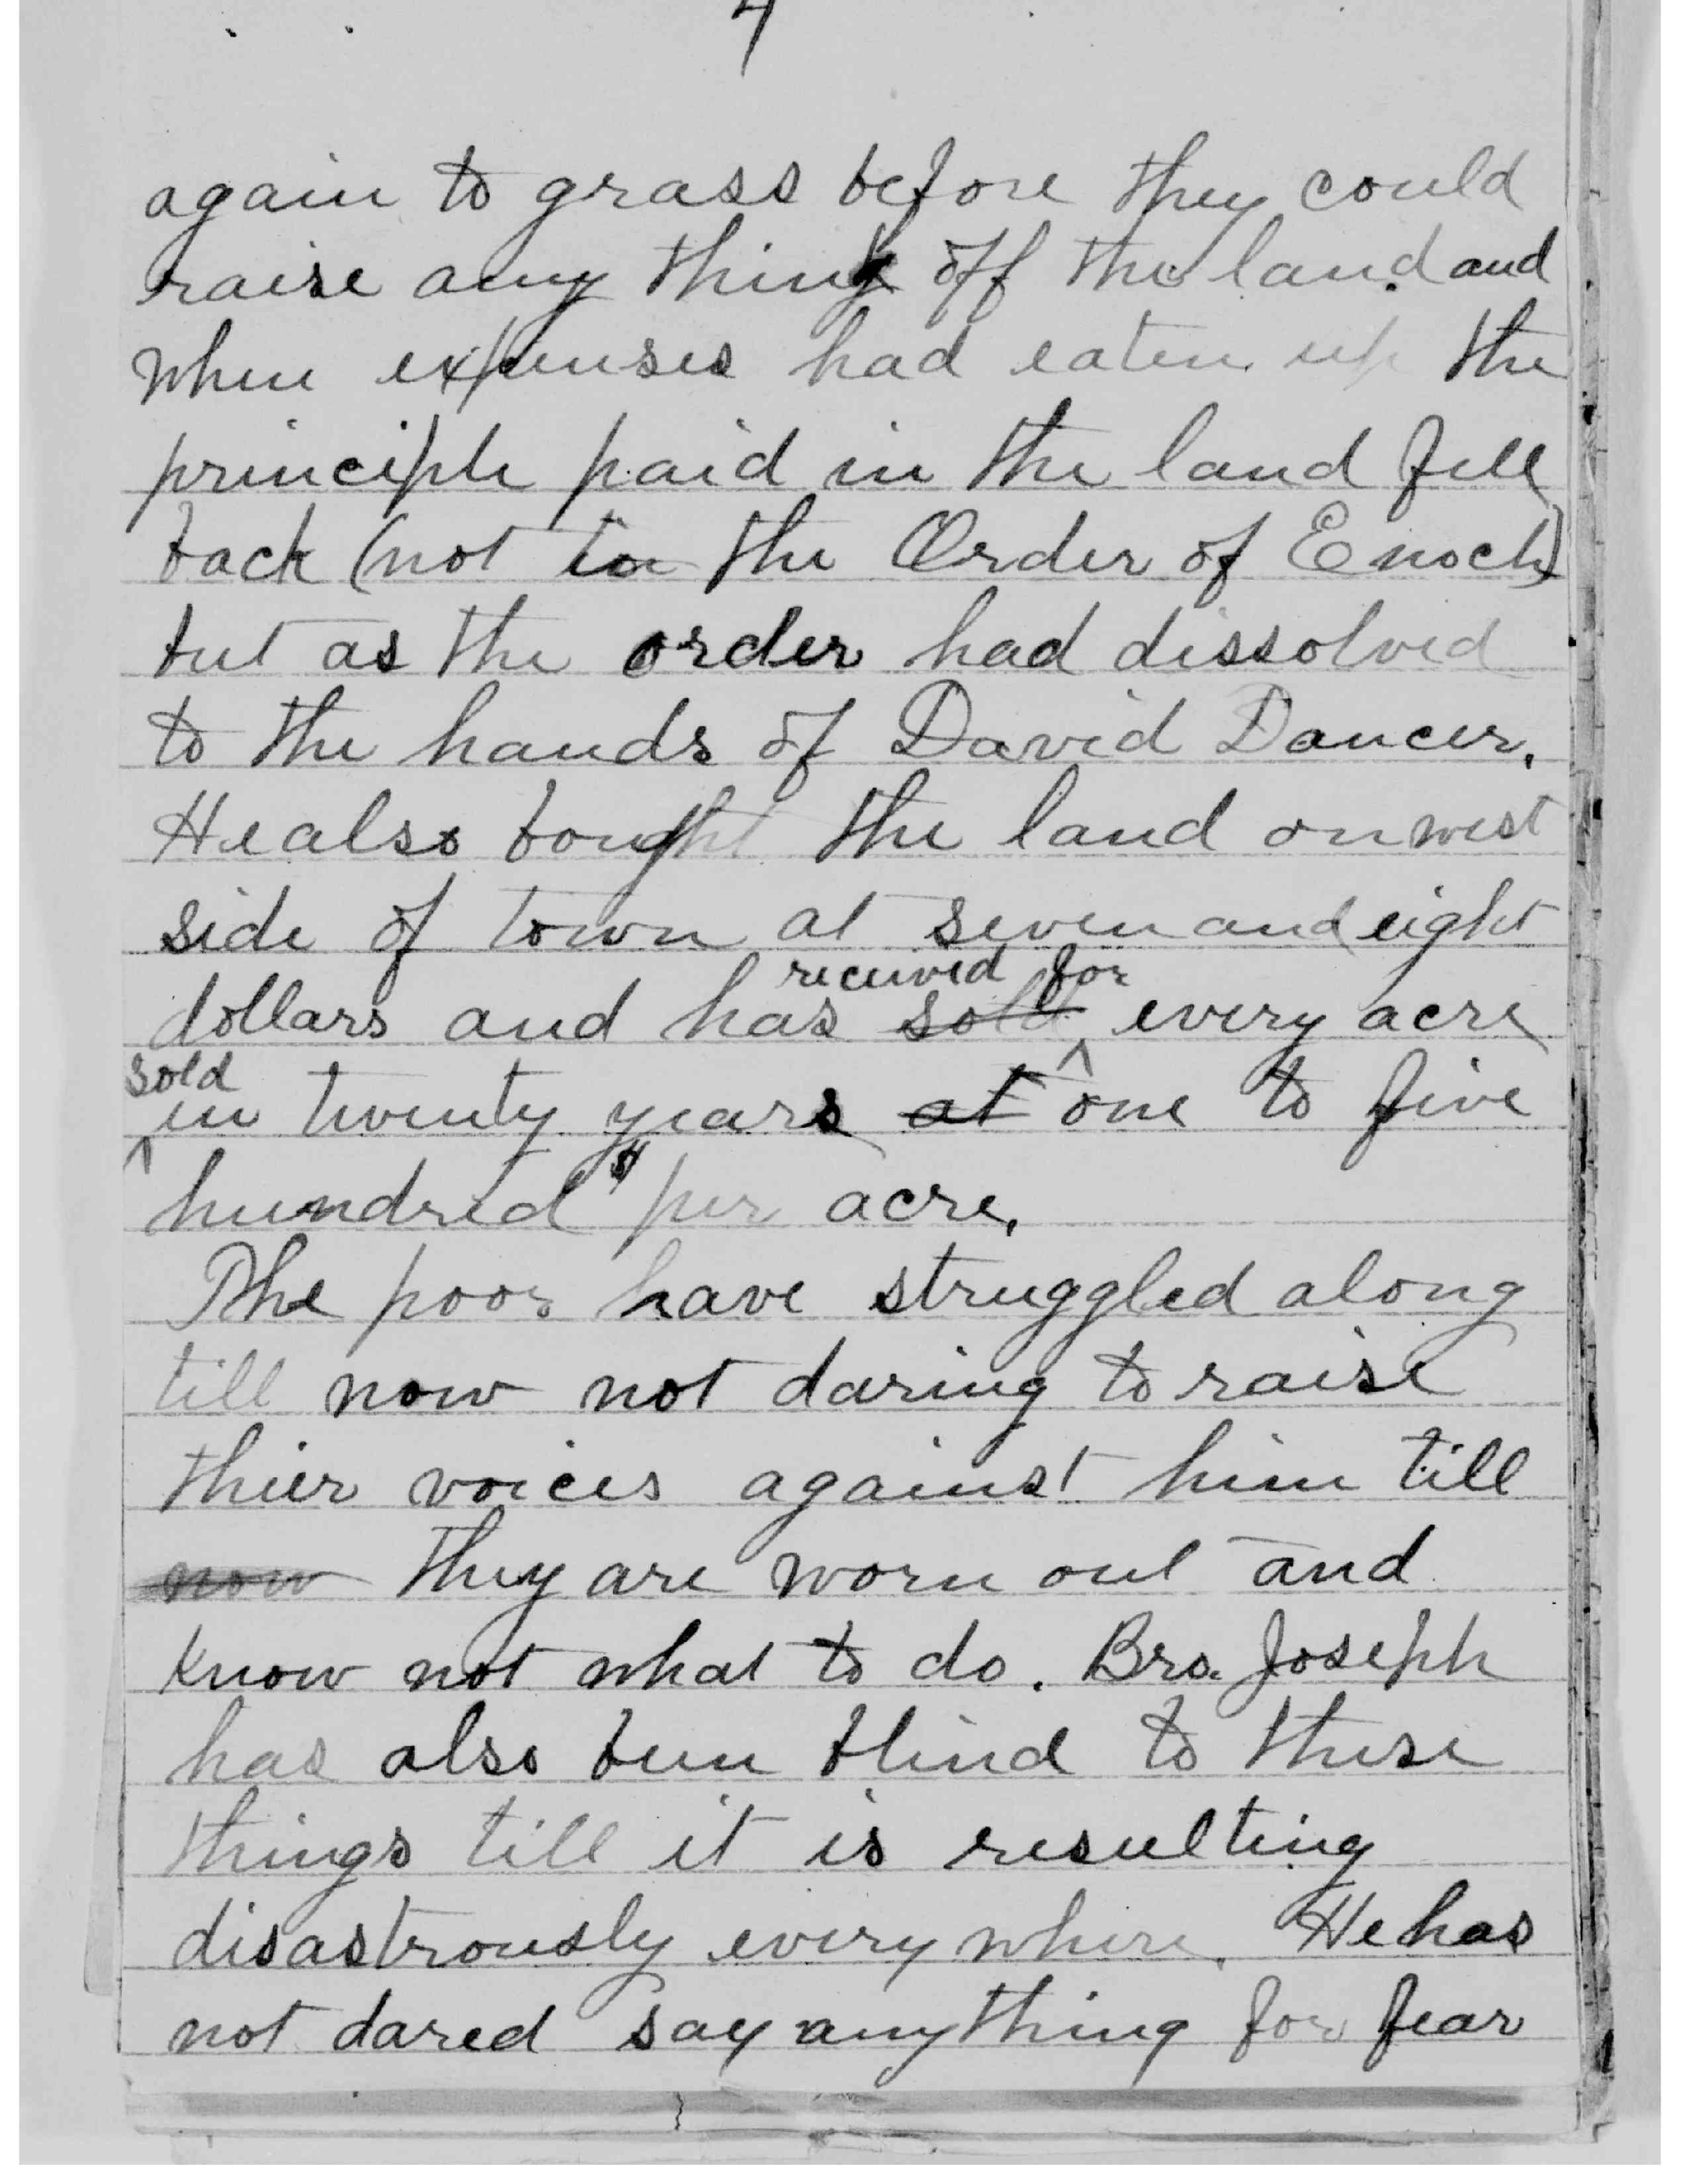 again to grass before they could
raise any thing off the land and
when expenses had eaten up the
principle paid in the land fell
back (not to the Order of Enoch)
but as the order had dissolved
to the hands of David Dancer.
He also bought the land on west
side of town at seven and eight
received for
dollars and has sold every acre
sold
in twenty years at one to five
hundred $ per acre.
The poor have struggled along
till now not daring to raise
thier voices against him till
now they are worn out and
know not what to do. Bro. Joseph
has also been blind to these
things till it is resulting
disastrously every where. He has
not dared say anything for fear